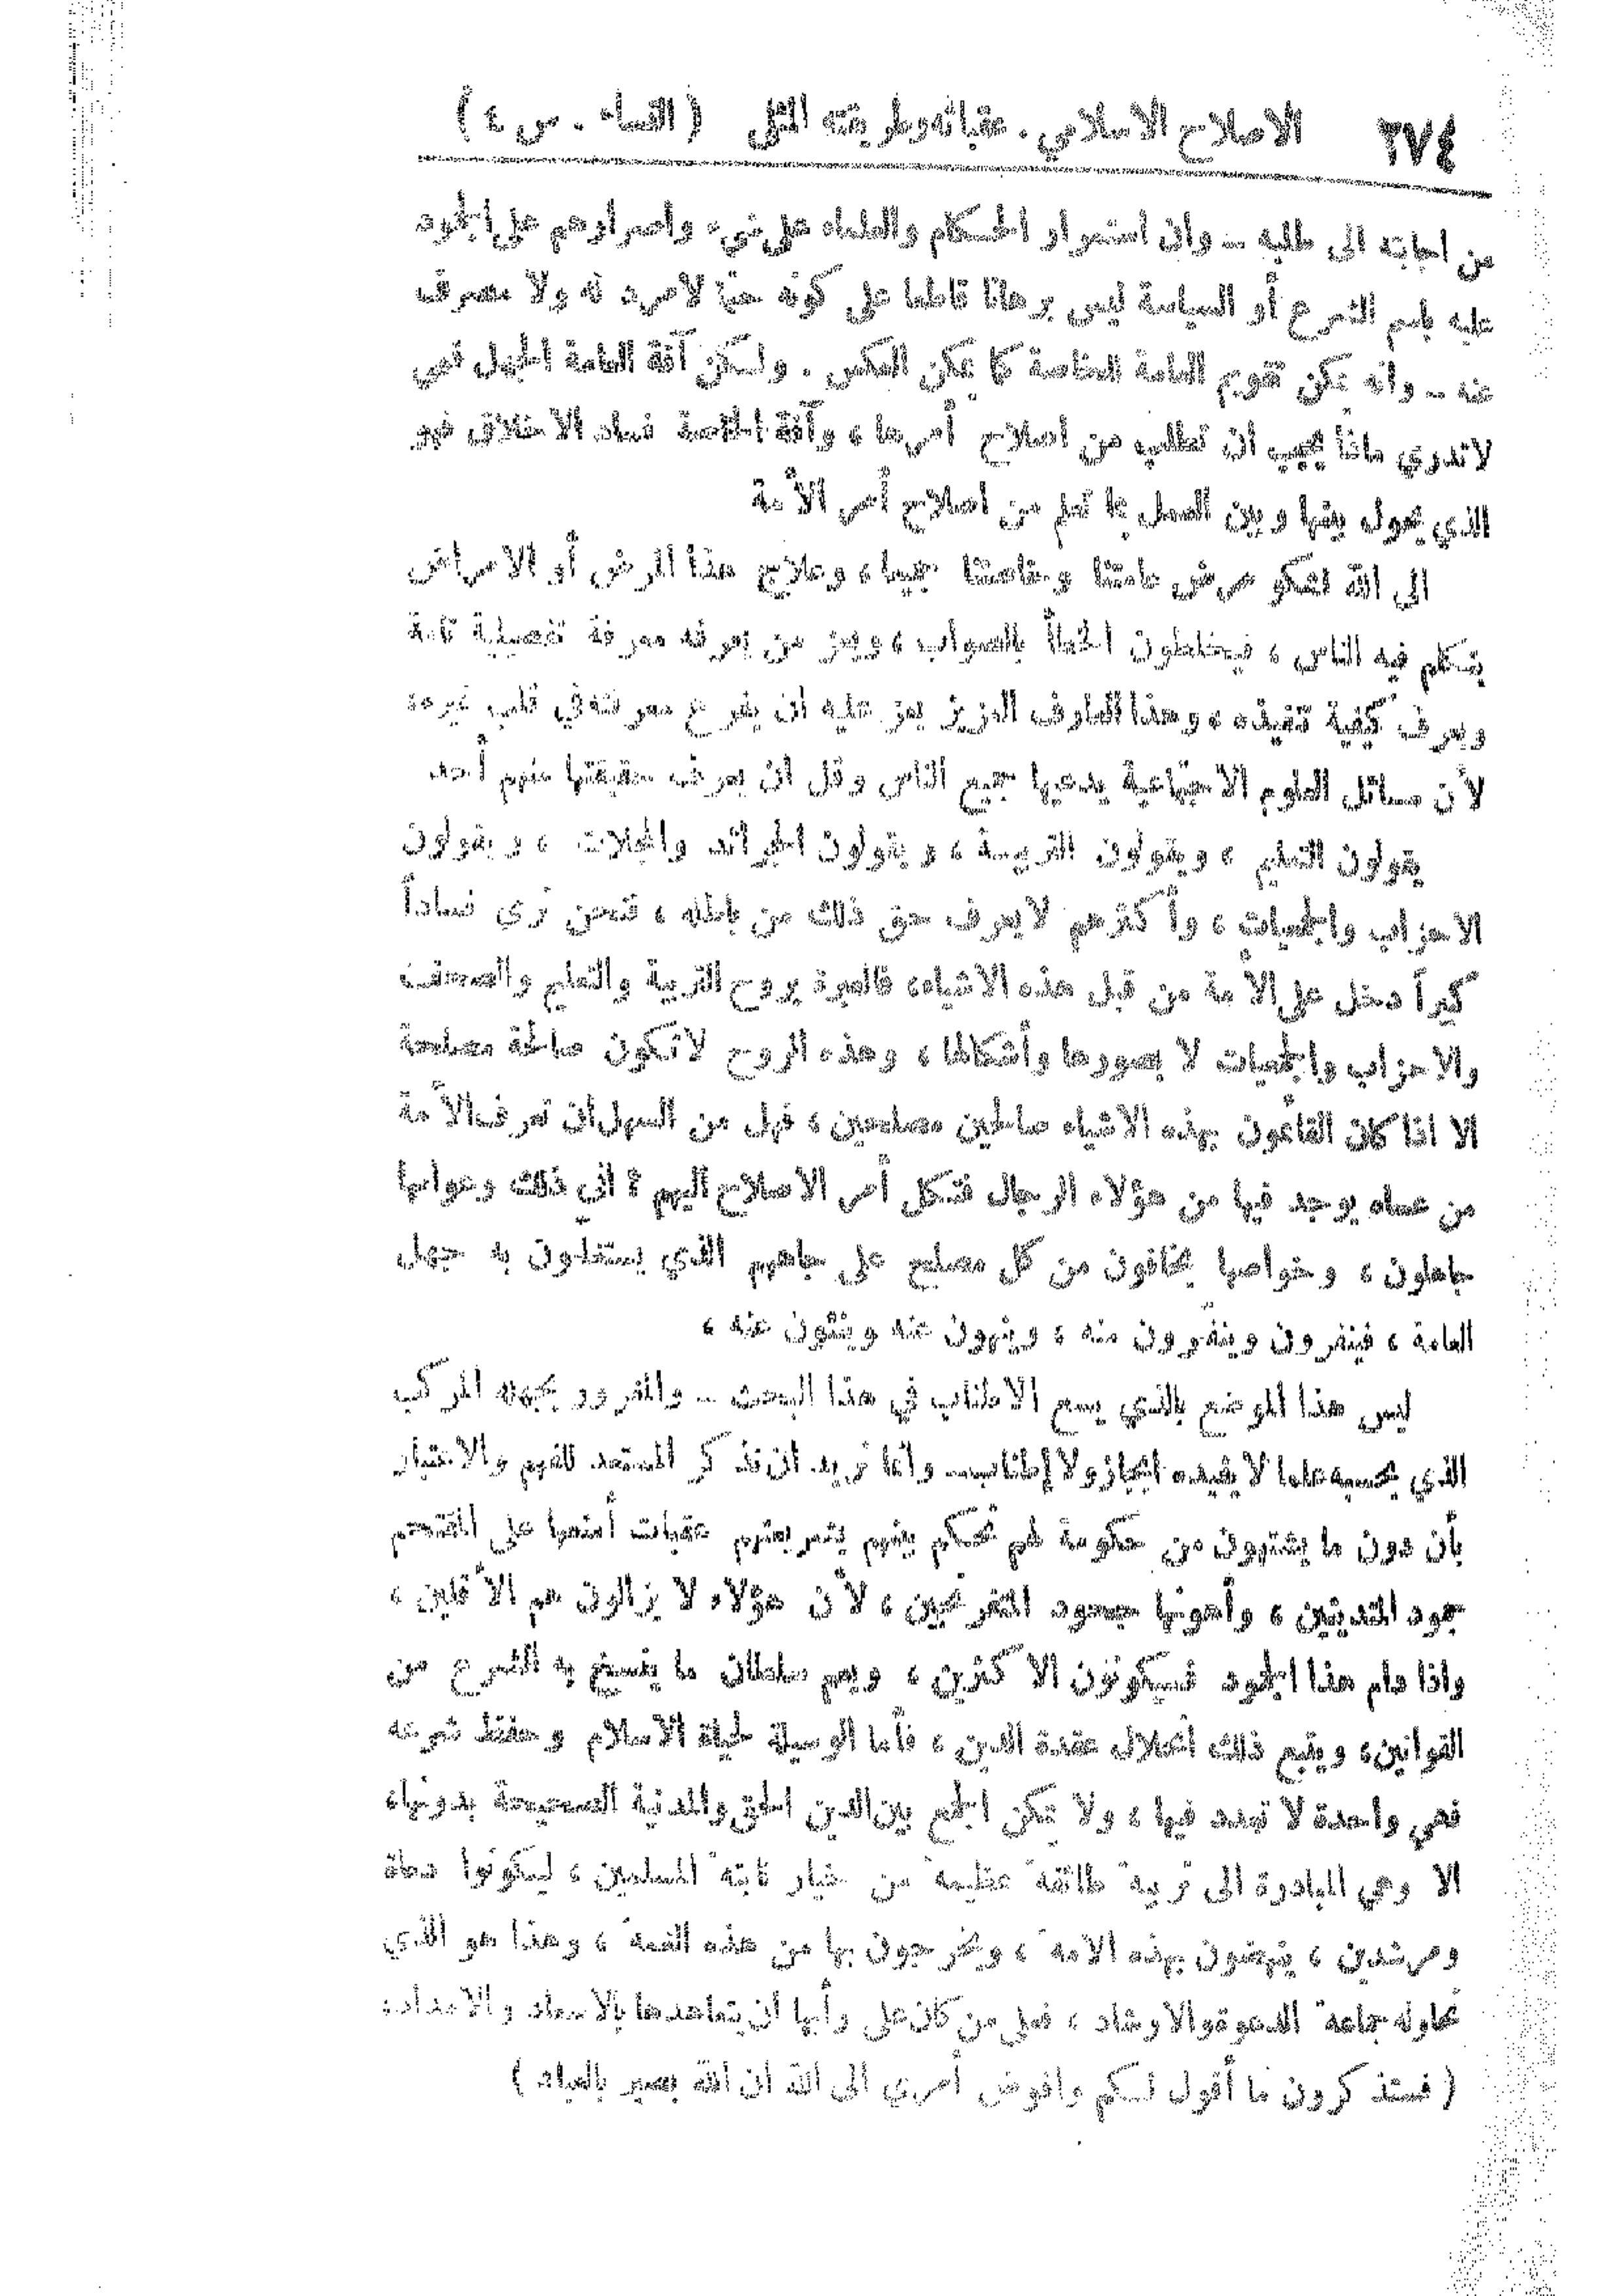 ٣٧٤ الاصلاح الاسلامي. عقباته وطريقته المثلى ( النساء . س ٤ )
من اجابته الى طلبه – وان استمرار الحكام والعلماء على شيء واصرارهم على الجمود
عليه باسم الشرع أو السياسة ليس برهانا قاطعا على كونه حتما لا مرد له ولا مصرف
عنه – وأنه يمكن تقويم العامة للخاصة كما يمكن العكس . ولكن آفة العامة الجهل فهي
لا تدري ماذا يجب ان تطلب من اصلاح أمرها ، وآفة الخاصة فساد الاخلاق فهو
الذي يحول بينها وبين العمل بما تعلم من اصلاح أمر الأمة
الى الله نشكو مرض عامتنا وخاصتنا جميعا ، وعلاج هذا المرض أو الامراض
يتكلم فيه الناس ، فيخلطون الخطأ بالصواب ، ويعز من يعرفه معرفة تفصيلية تامة
ويعرف كيفية تنفيذه ، وهذا العارف العزيز يعز عليه ان يفرغ معرفته في قلب غيره ،
لأن مسائل العلوم الاجتماعية يدعيها جميع الناس وقل ان يعرف حقيقتها منهم أحد
يقولون التعليم ، ويقولون التربية ، ويقولون الجرائد والمجلات ، ويقولون
الاحزاب والجمعيات ، وأكثرهم لا يعرف حق ذلك من باطله ، فنحن نرى فساداً
كبيراً دخل على الأمة من قبل هذه الاشياء ، فالعبرة بروح التربية والتعليم والصحف
والاحزاب والجمعيات لا بصورها وأشكالها ، وهذه الروح لا تكون صالحة مصلحة
الا اذا كان القائمون بهذه الاشياء صالحين مصلحين ، فهل من السهل ان تعرف الأمة
من عساه يوجد فيها من هؤلاء الرجال فتكل أمر الاصلاح اليهم ؟ انى ذلك وعوامها
جاهلون ، وخواصها يخافون من كل مصلح على جاههم الذي يستغلون به جهل
العامة ، فينفرون وينفّرون منه ، وينهون عنه وينئون عنه ،
ليس هذا الموضع بالذي يسع الاطناب في هذا البحث – والمغرور بجهله المركب
الذي يحسبه علما لا يفيده ايجاز ولا إطناب – وانما نريد ان نذكر المستعد للفهم والاعتبار
بأن دون ما يشتهون من حكومة لهم تحكم بينهم بشريعتهم عقبات أمنعها على المقتحم
جمود المتدينين ، وأهونها جحود المتفرنجين ، لأن هؤلاء لا يزالون هم الأقلين ،
واذا دام هذا الجمود فسيكونون الاكثرين ، ويعم سلطان ما ينسخ به الشرع من
القوانين ، ويتبع ذلك انحلال عقدة الدين ، فأما الوسيلة لحياة الاسلام وحفظ شرعه
فهي واحدة لا تعدد فيها ، ولا يمكن الجمع بين الدين الحق والمدنية الصحيحة بدونها ،
الا وهي المبادرة الى تربية طائفة عظيمة من خيار نابتة المسلمين ، ليكونوا دعاة
ومرشدين ، ينهضون بهذه الامة ، ويخرجون بها من هذه الغمة ، وهذا هو الذي
تحاوله جماعة الدعوة والارشاد ، فعلى من كان على رأيها أن يتعاهدها بالاسعاد والامداد ،
( فستذكرون ما أقول لكم وافوض أمري الى الله ان الله بصير بالعباد )